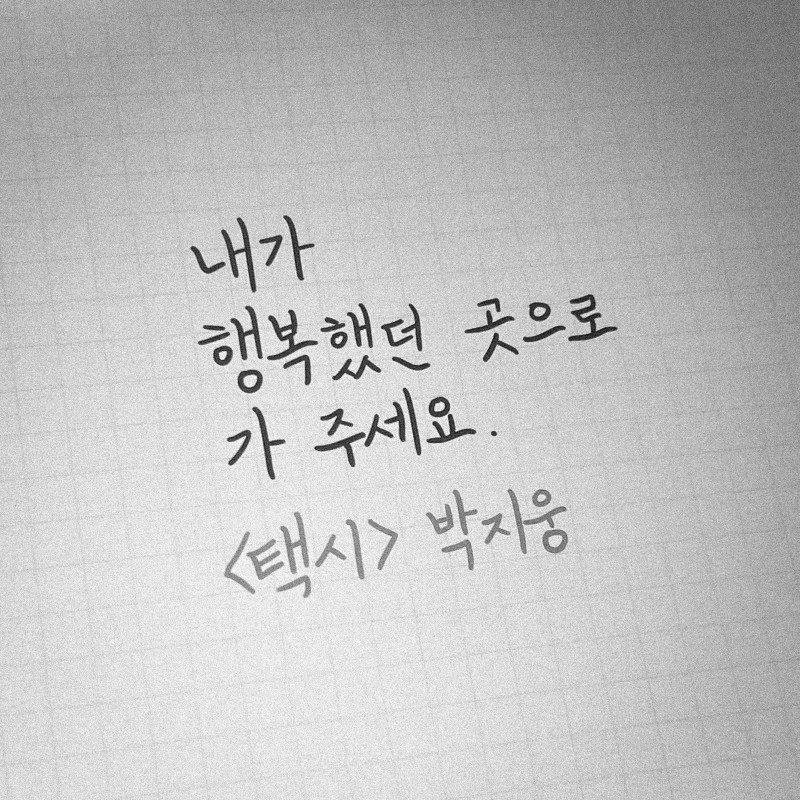 내가
행복했던 곳으로
가 주세요.
<택시> 박지웅